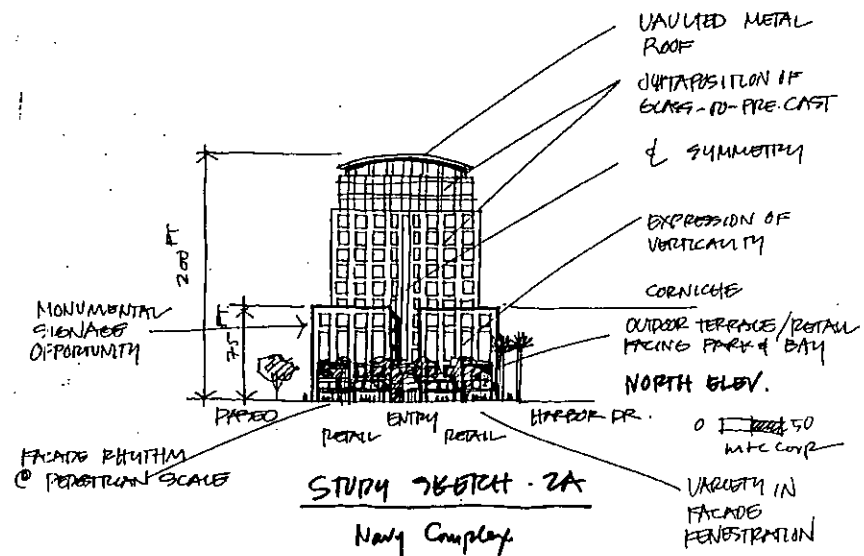 VAULTED METAL
ROOF
JUXTAPOSITION OF
GLASS-TO-PRE.CAST
& SYMMETRY
EXPRESSION OF
VERTICALITY
CORNICHE
OUTDOOR TERRACE/RETAIL
FACING PARK & BAY
NORTH ELEV.
0 50
200 FT
75 FT
MONUMENTAL
SIGNAGE
OPPORTUNITY
PASEO ENTRY HARBOR DR.
RETAIL RETAIL
FACADE RHYTHM
@ PEDESTRIAN SCALE
STUDY SKETCH - 2A
Navy Complex
VARIETY IN
FACADE
FENESTRATION